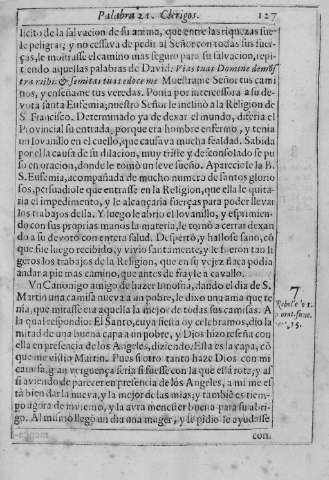 Palabra 21. Clerigos. 127
licito de la salvacion de su anima, que entre las riquezas sue-
le peligrar; y no cessava de pedir al Señor con todas sus fuer-
ças, le mostrasse el camino mas seguro para su salvacion, repi-
tiendo aquellas palabras de David: Vias tuas Domine demõs
tra mihi: & semitas tuas edoce me Muestrame Señor tus cami
nos, y enseñame tus veredas. Ponia por intercessora a su de-
vota santa Eufemia; nuestro Señor le inclinò a la Religion de
S. Francisco. Determinado ya de dexar el mundo, diferia el
Provincial su entrada, porque era hombre enfermo, y tenia
un lovanillo en el cuello, que causava mucha fealdad. Sabida
por el la causa de su dilacion, muy triste y desconsolado se pu
so en oracion, donde le tomò un leve sueño. Apareciole la B.
S. Eufemia, acompañada de mucho numero de santos glorio
sos, persuadiole que entrasse en la Religion, que ella le quita-
ria el impedimento, y le alcançaria fuerças para poder llevar
los trabajos della. Y luego le abrio el lovanillo, y esprimien-
do con sus propias manos la materia, le tornò a cerrar dexan
do a su devoto con entera salud. Despertò, y hallose sano, cõ
que fue luego recibido, y vivio santamente, y le fueron tan li
geros los trabajos de la Religion, que en su vejez flaca podia
andar a pie mas camino, que antes de frayle a cavallo.
Un Canonigo amigo de hazer limosna, dando el dia de S.
Martin una camisa nueva a un pobre, le dixo una ama que te
nia, que mirasse era aquella la mejor de todas sus camisas. A
la qual respondio: El Santo, cuya fiesta oy celebramos, dio la
mitad de una buena capa a un pobre, y Dios hizo reseña con
ella en presencia de los Angeles, diziendo: Esta es la capa, cõ
que me vistio Martin. Pues si otro tanto haze Dios con mi
camisa, gran verguença seria si fuesse con la que està rota; y as
si aviendo de parecer en presencia de los Angeles, a mi me es
tà bien dar la nueva, y la mejor de las mias; y tambiẽ es tiem-
po agora de invierno, y la avra menester buena para su abri-
go. Al mismo llegò un dia una muger, y le pidio le ayudasse
con-
7